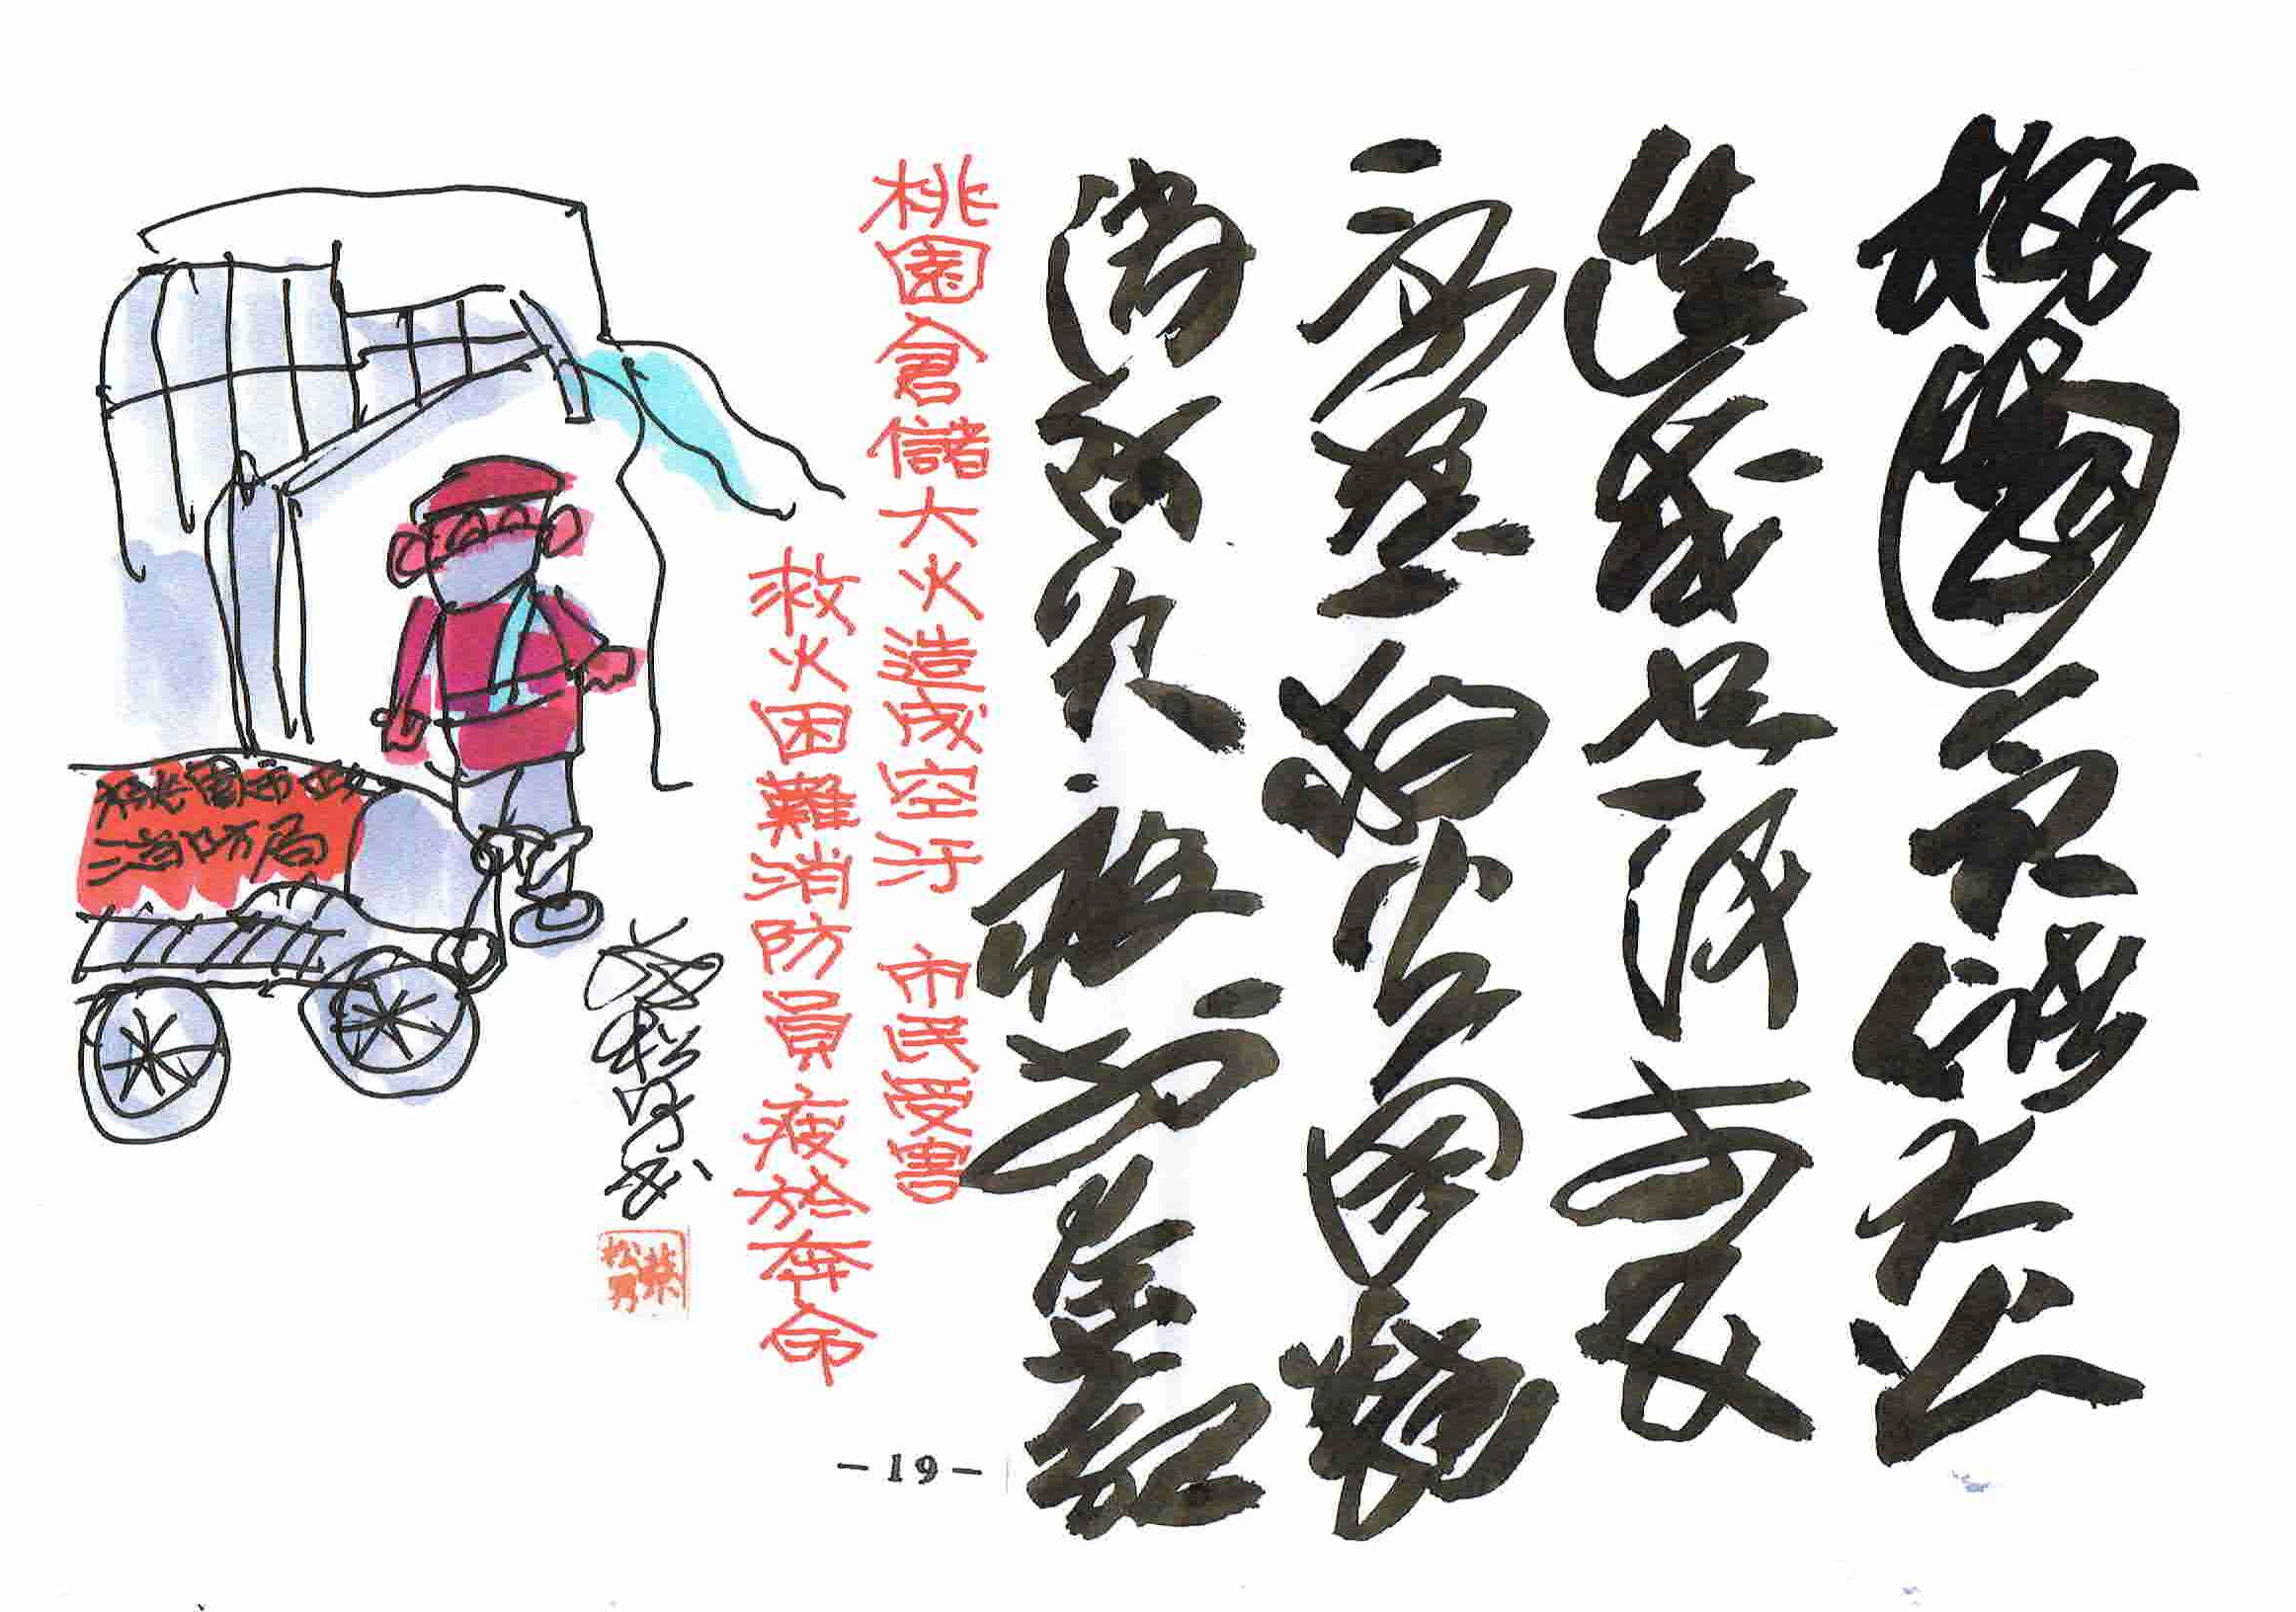 桃園倉儲大火
造成空汙市民
受害救火困難
消防員疲於奔命
桃園倉儲大火造成空汙 市民受害
救火困難消防員疲於奔命
蔡松男书
蔡松男
桃園市政
消防局
-19-